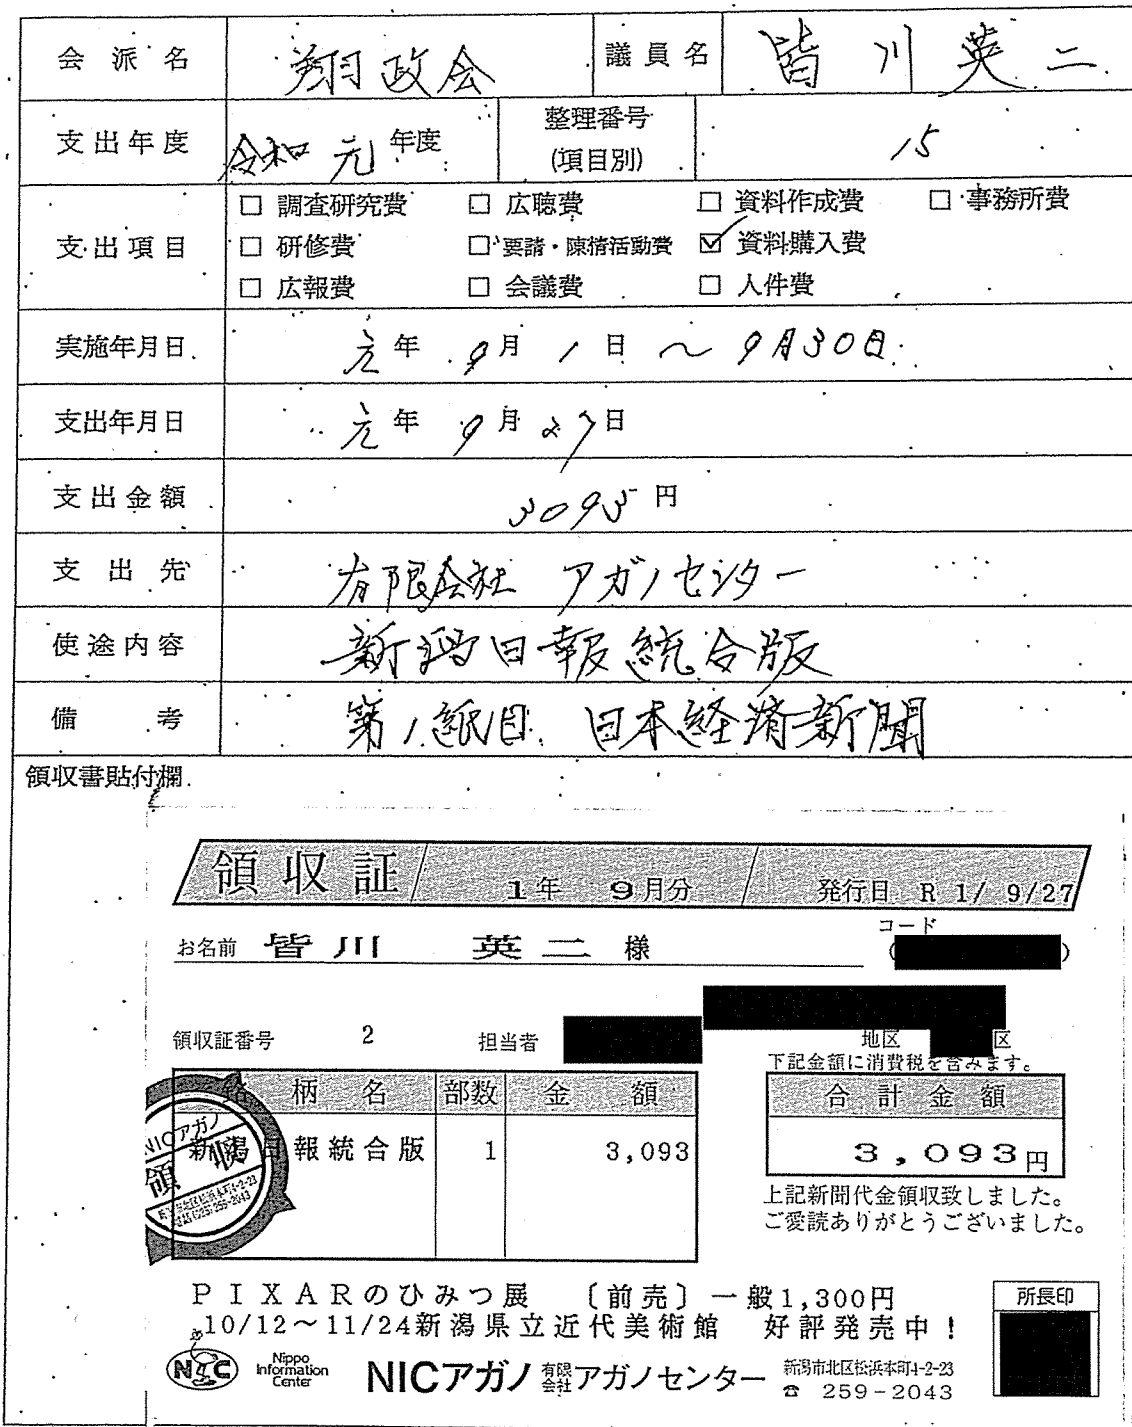 会派名 翔政会 議員名 皆川英二
支出年度 令和元年度 整理番号(項目別) 15
支出項目
□ 調査研究費 □ 広聴費 □ 資料作成費 □ 事務所費
□ 研修費 □ 要請・陳情活動費 ☑ 資料購入費
□ 広報費 □ 会議費 □ 人件費
実施年月日 元年 9月 1日 ~ 9月30日
支出年月日 元年 9月 27日
支出金額 3093円
支出先 有限会社 アガノセンター
使途内容 新潟日報統合版
備考 第1紙目 日本経済新聞
領収書貼付欄
領収証 1年 9月分 発行日 R 1/ 9/27
コード
お名前 皆川 英二 様 ( )
領収証番号 2 担当者 地区 区
下記金額に消費税を含みます。
銘柄名 部数 金額 合計金額
新潟日報統合版 1 3,093 3,093円
NICアガノ
領収
上記新聞代金領収致しました。
ご愛読ありがとうございました。
PIXARのひみつ展 〔前売〕一般1,300円
10/12~11/24新潟県立近代美術館 好評発売中!
所長印
NIC Nippo Information Center NICアガノ 有限会社アガノセンター 新潟市北区松浜本町4-2-23
☎ 259-2043